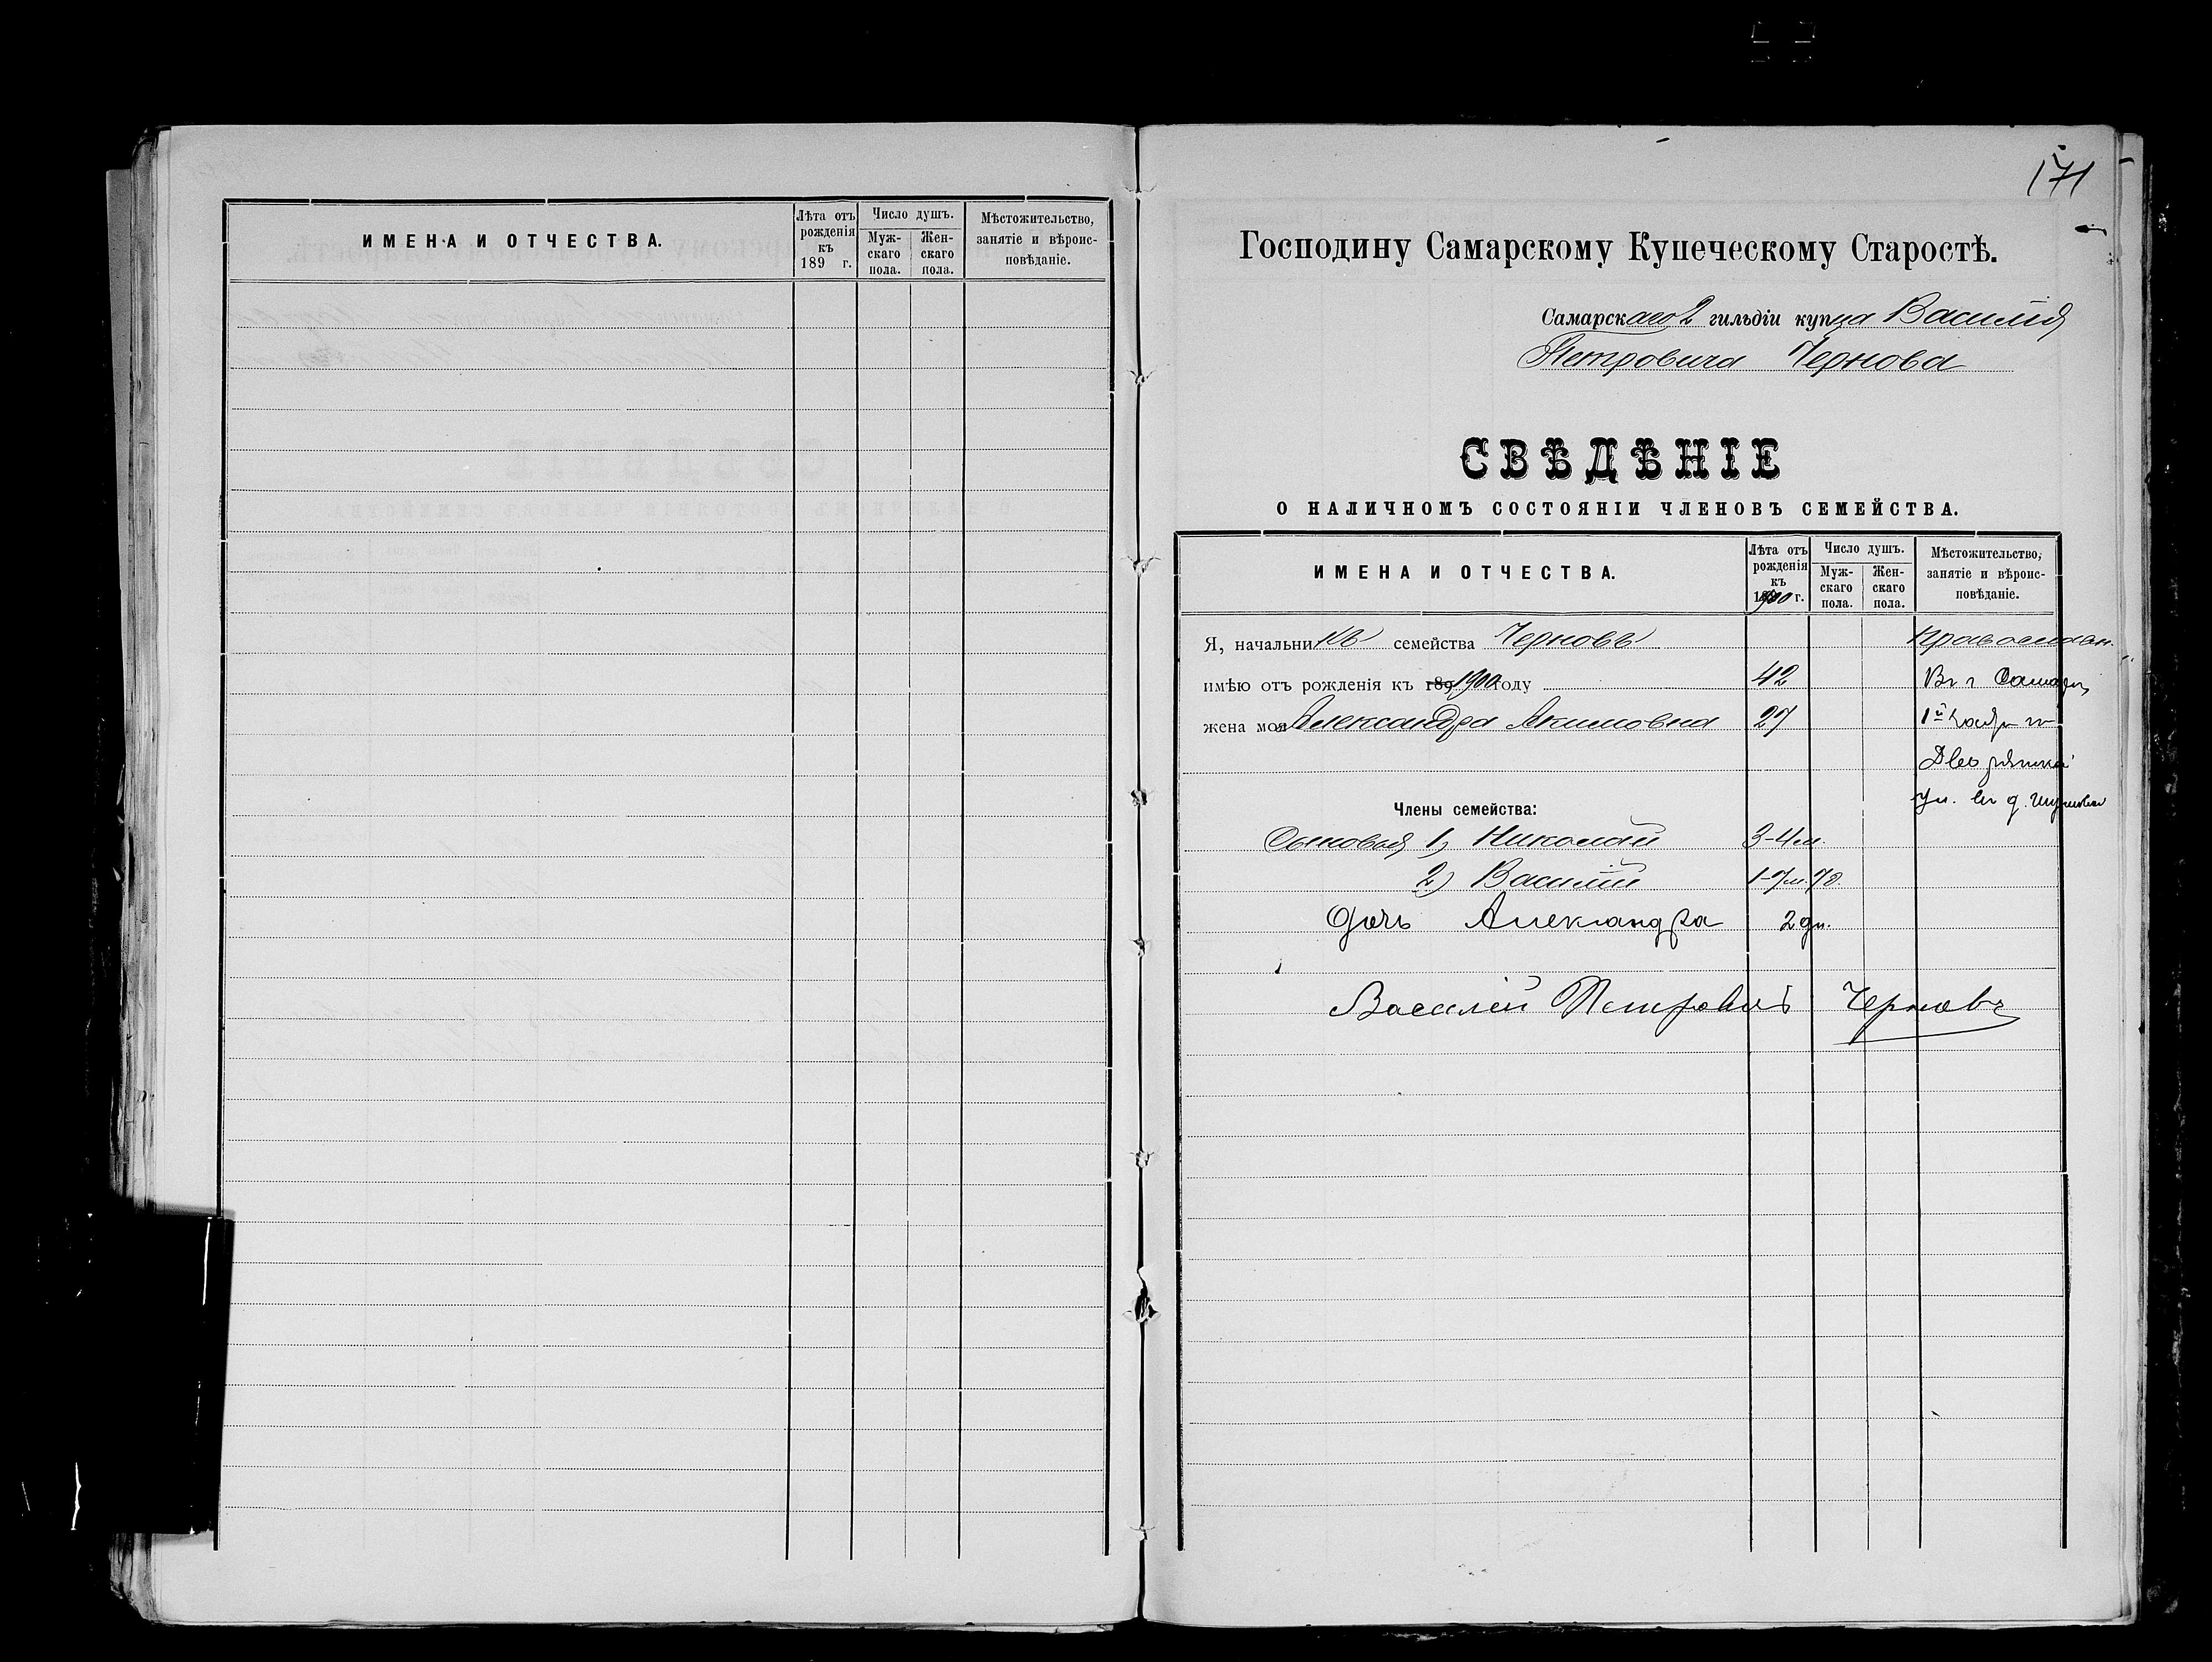 ИМЕНА И ОТЧЕСТВА.
Лѣта отъ рожденія къ 189 г.
Число душъ.
Мужскаго пола.
Женскаго пола.
Мѣстожительство, занятіе и вѣроисповѣданіе.
171
Господину Самарскому Купеческому Старостѣ.
Самарскаго 2 гильдіи купца Василія
Петровича Чернова
СВѢДѢНІЕ
О НАЛИЧНОМЪ СОСТОЯНІИ ЧЛЕНОВЪ СЕМЕЙСТВА.
ИМЕНА И ОТЧЕСТВА.
Лѣта отъ рожденія къ 1900 г.
Число душъ.
Мужскаго пола.
Женскаго пола.
Мѣстожительство, занятіе и вѣроисповѣданіе.
Я, начальникъ семейства Черновъ Православн.
имѣю отъ рожденія къ 189 1900 году 42 Въ г Самарѣ
жена моя Александра Акимовна 27 1й части
Дворянская
Ул. въ д.
Члены семейства:
Сыновья 1, Николай 3-4м.
2) Василій 1-7м.7д.
Дочь Александра 2 дн.
Василій Петровичъ Черновъ